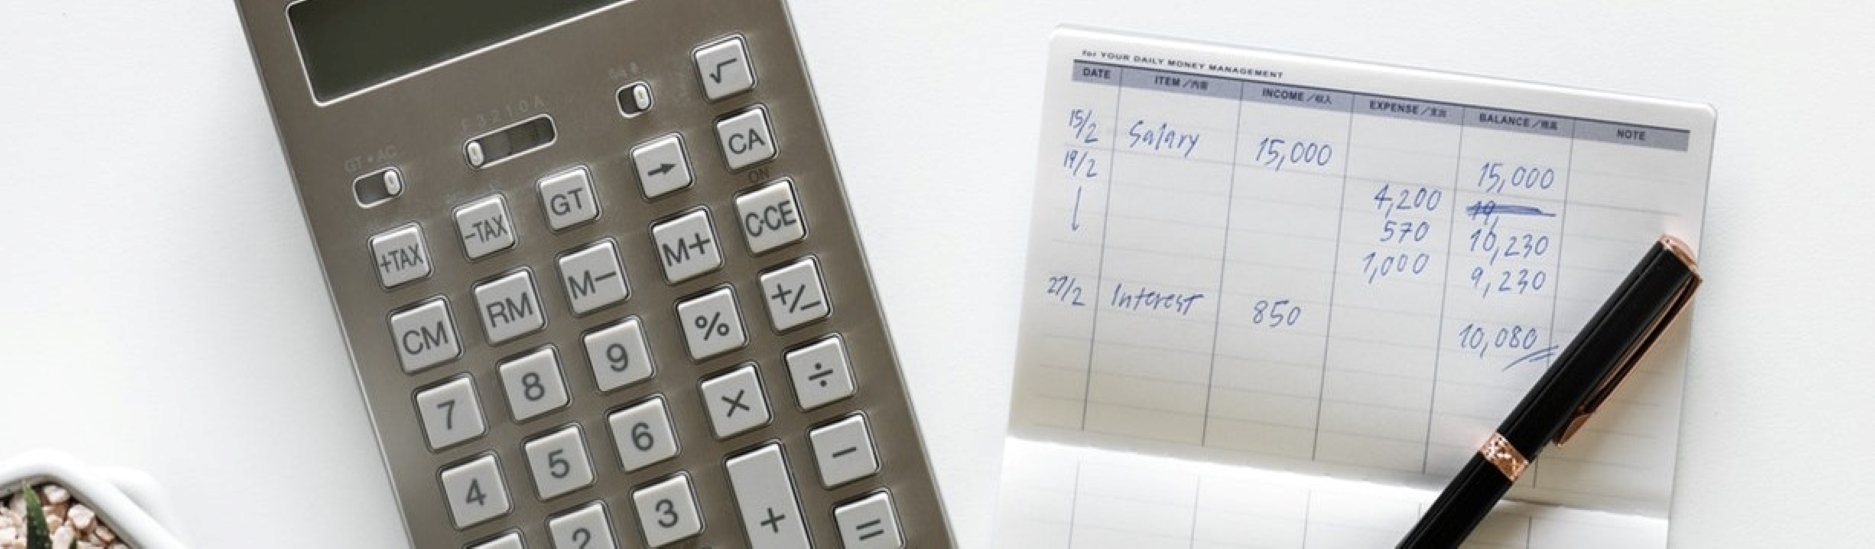 GT•AC
F3210A
√
CA
→
ON
+TAX
-TAX
GT
M+
C·CE
CM
RM
M-
%
+/-
7
8
9
×
÷
4
5
6
+
-
2
3
=
for YOUR DAILY MONEY MANAGEMENT
DATE ITEM/内容 INCOME/収入 EXPENSE/支出 BALANCE/残高 NOTE
15/2 Salary 15,000 15,000
19/2 4,200
570 10,230
1,000 9,230
27/2 Interest 850 10,080